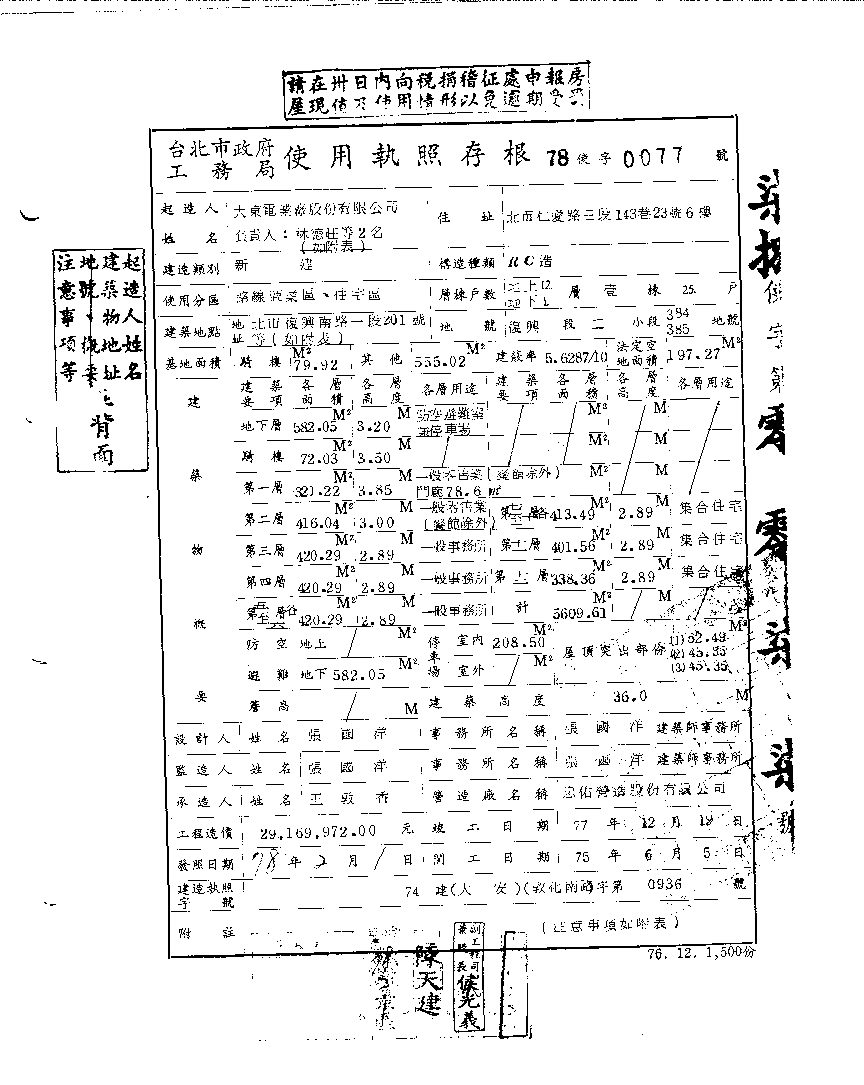 請在卅日內向稅捐稽征處申報房
屋現值及使用情形以免逾期受罰
台北市政府
工務局 使用執照存根 78使字0077號
起造人 大東電業廠股份有限公司
姓名 負責人：林憲旺等2名
(如附表)
住址 北市仁愛路三段143巷23號6樓
建造類別 新建 構造種類 RC造
使用分區 路線商業區、住宅區 層棟戶數 地上12 地下1 層壹棟25戶
建築地點 地址 北市復興南路一段201號
等(如附表)
地號 復興段二小段 384 385 地號
基地面積 騎樓 79.92 M² 其他 555.02 M² 建蔽率 5.6287/10 法定空地面積 197.27 M²
建築物概要
建築要項 各層面積 各層高度 各層用途 建築要項 各層面積 各層高度 各層用途
地下層 582.05 M² 3.20 M 防空避難室兼停車場
騎樓 72.03 M² 3.50 M
第一層 321.22 M² 3.85 M 一般零售業(餐飾除外)
門廳78.6㎡
第二層 416.04 M² 3.00 M 一般零售業(餐飾除外) 413.49 M² 2.89 M 集合住宅
第三層 420.29 M² 2.89 M 一般事務所 401.56 M² 2.89 M 集合住宅
第四層 420.29 M² 2.89 M 一般事務所 338.36 M² 2.89 M 集合住宅
第五至六層各 420.29 M² 2.89 M 一般事務所 計 5609.61 M²
防空避難 地上 M² 停車場 室內 208.50 M² 屋頂突出部份 (1)62.49 M²
(2)45.35
(3)45.35
地下 582.05 M² 室外 M²
簷高 M 建築高度 36.0 M
設計人 姓名 張國洋 事務所名稱 張國洋 建築師事務所
監造人 姓名 張國洋 事務所名稱 張國洋 建築師事務所
承造人 姓名 王敦香 營造廠名稱 忠佑營造股份有限公司
工程造價 29,169,972.00 元 竣工日期 77年12月19日
發照日期 78年2月1日 開工日期 75年6月5日
建造執照字號 74建(大安)(敦化南路字第0936號
附註 (注意事項如附表)
76.12.1,500份
起造人姓名
建築物地址
地號、概要
注意事項等
背面
柒捌使字第零零柒柒號
陸天建
副工程司
侯光義